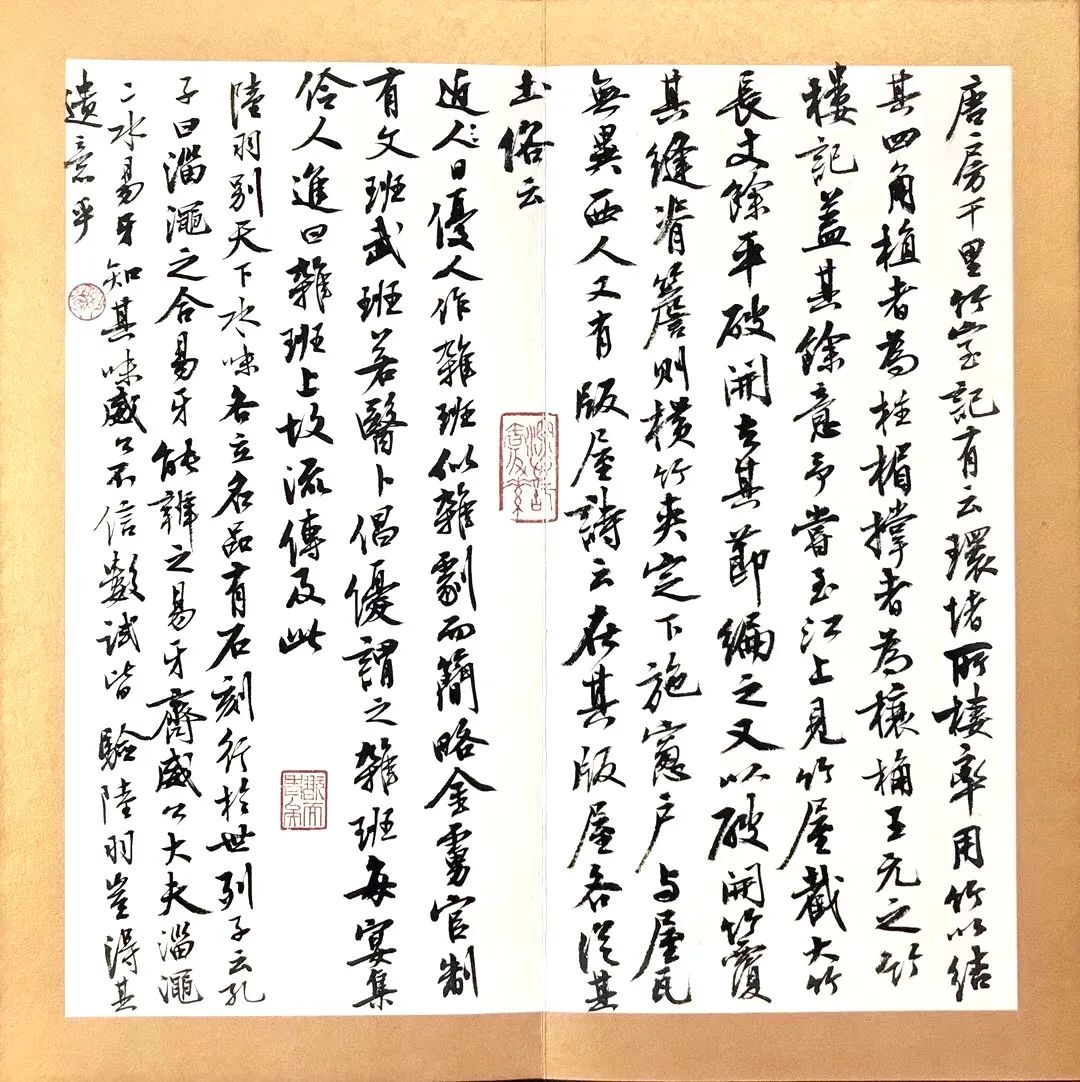 唐房千里竹室記有云環堵所棲率用竹以結
其四角植者為柱楣撐者為榱桷王元之竹
樓記蓋其餘意予嘗至江上見竹屋截大竹
長丈餘平破開去其節編之又以破開竹覆
其縫脊簷則橫竹夾定下施窗戶与屋瓦
無異西人又有版屋詩云在其版屋各從其
土俗云
近人曰優人作雜班似雜劇而簡略金虜官制
有文班武班若醫卜倡優謂之雜班每宴集
伶人進曰雜班上故流傳及此
陸羽別天下水味各立名品有石刻行於世列子云孔
子曰淄澠之合易牙能辨之易牙齊威公大夫淄澠
二水易牙知其味威公不信數試皆驗陸羽豈得其
遺意乎